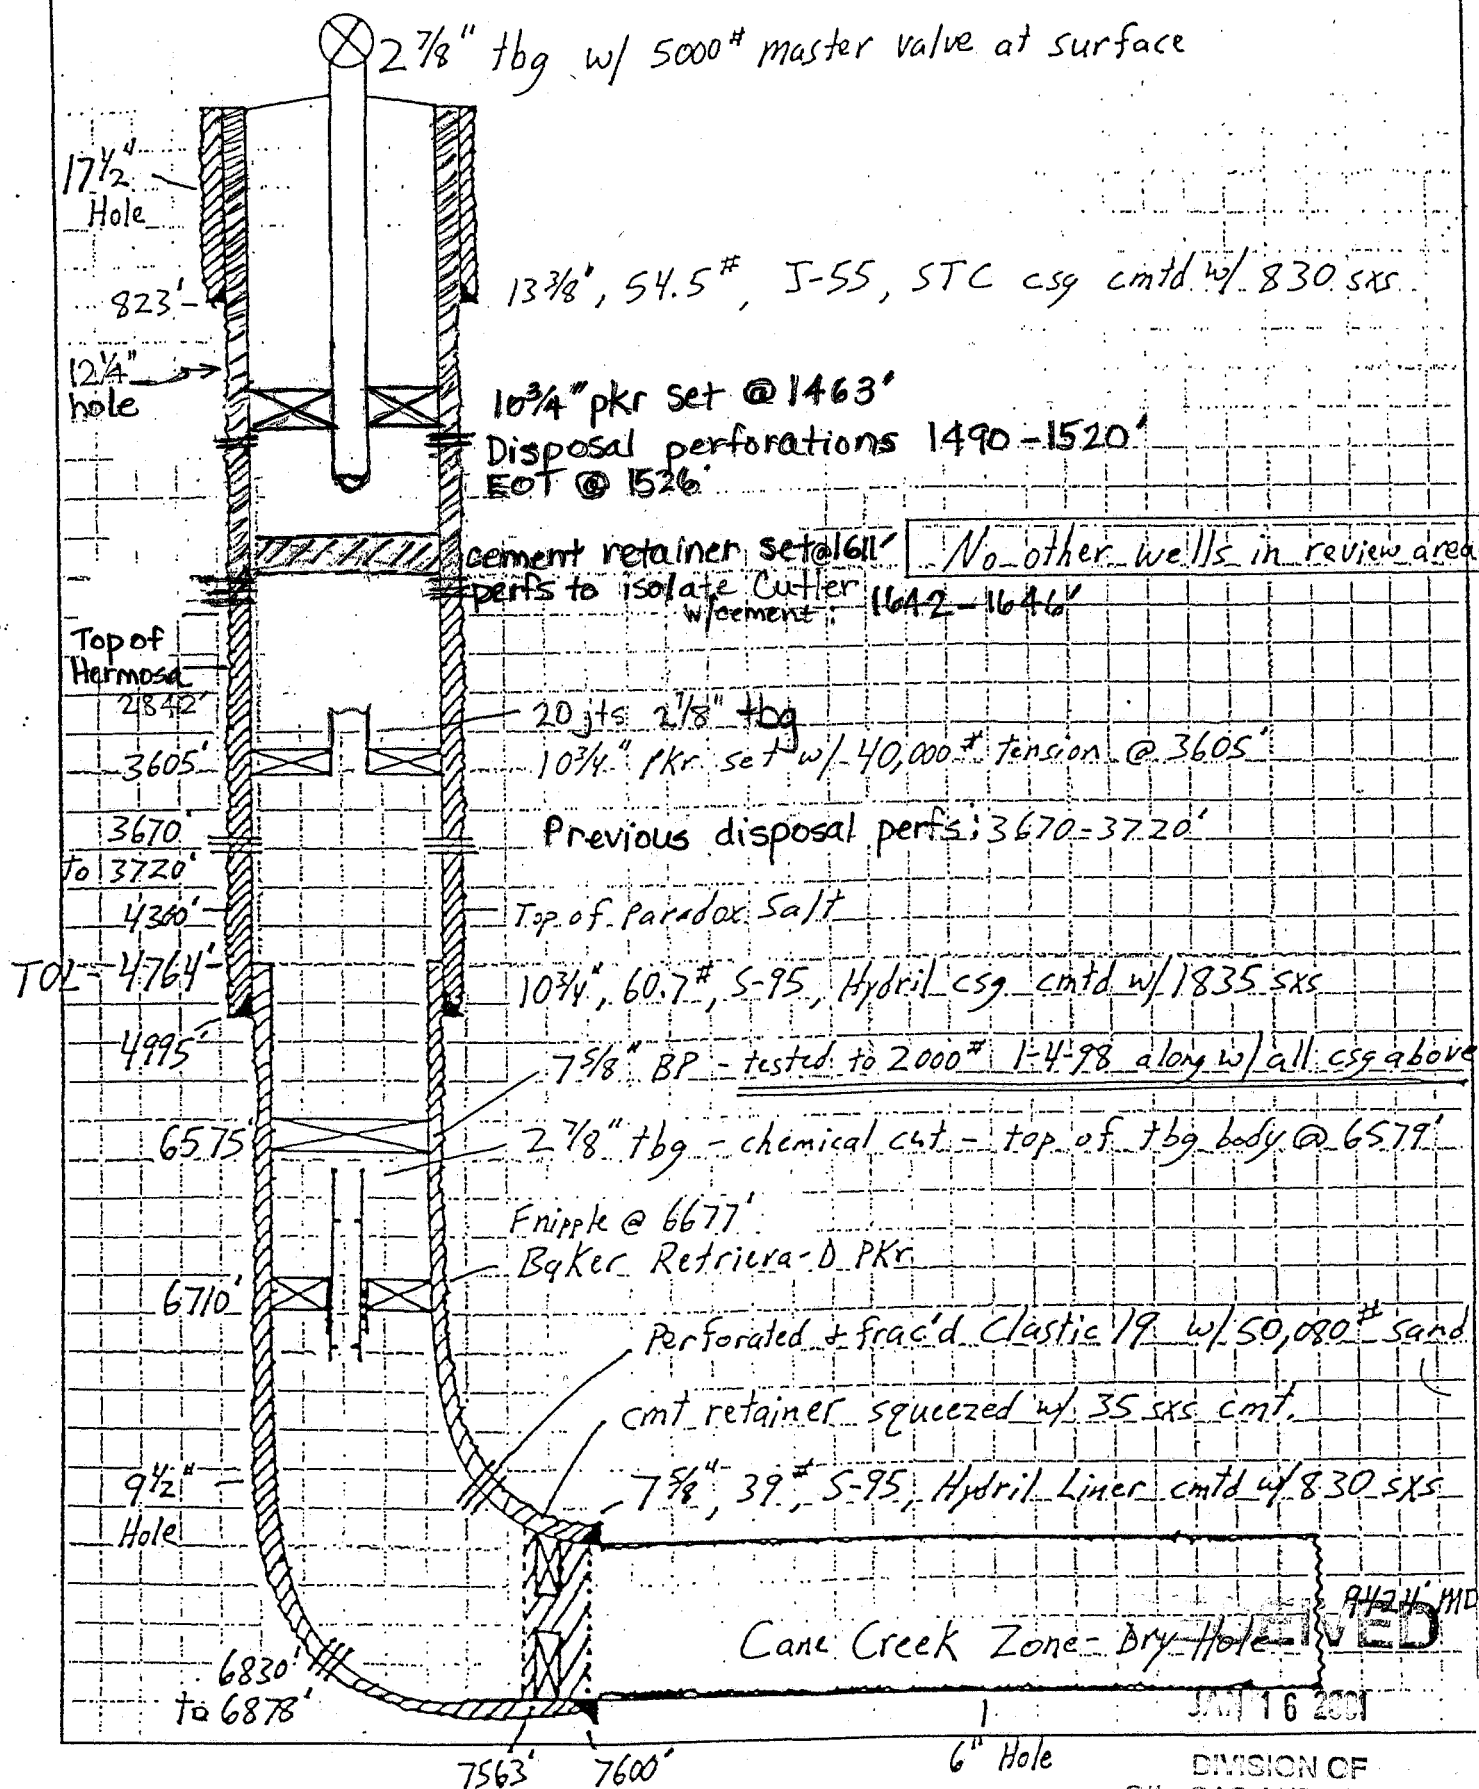 2 7/8" tbg w/ 5000# master valve at surface
17 1/2"
Hole
823'
13 3/8", 54.5#, J-55, STC csg cmtd w/ 830 sxs
12 1/4"
hole
10 3/4" pkr set @ 1463'
Disposal perforations 1490-1520'
EOT @ 1526'
cement retainer set @ 1611'
No other wells in review area
perfs to isolate Cutler
w/cement: 1642-1646'
Top of
Hermosa
2842'
20 jts 2 7/8" tbg
3605'
10 3/4" Pkr set w/ 40,000# tension @ 3605'
3670'
to 3720'
Previous disposal perfs: 3670-3720'
4360'
Top of Paradox Salt
TOL- 4764'
10 3/4", 60.7#, S-95, Hydril csg cmtd w/ 1835 sxs
4995'
7 5/8" BP - tested to 2000# 1-4-98 along w/ all csg above
6575'
2 7/8" tbg - chemical cut - top of tbg body @ 6579'
F nipple @ 6677'
Baker Retrieva-D PKr
6710'
Perforated & frac'd Clastic 19 w/ 50,080# sand
cmt retainer squeezed w/ 35 sxs cmt.
9 1/2"
Hole
7 5/8", 39#, S-95, Hydril Liner cmtd w/ 830 sxs
9424' MD
Cane Creek Zone - Dry Hole
6830'
to 6878'
JAN 16 2001
7563'
7600'
6" Hole
DIVISION OF